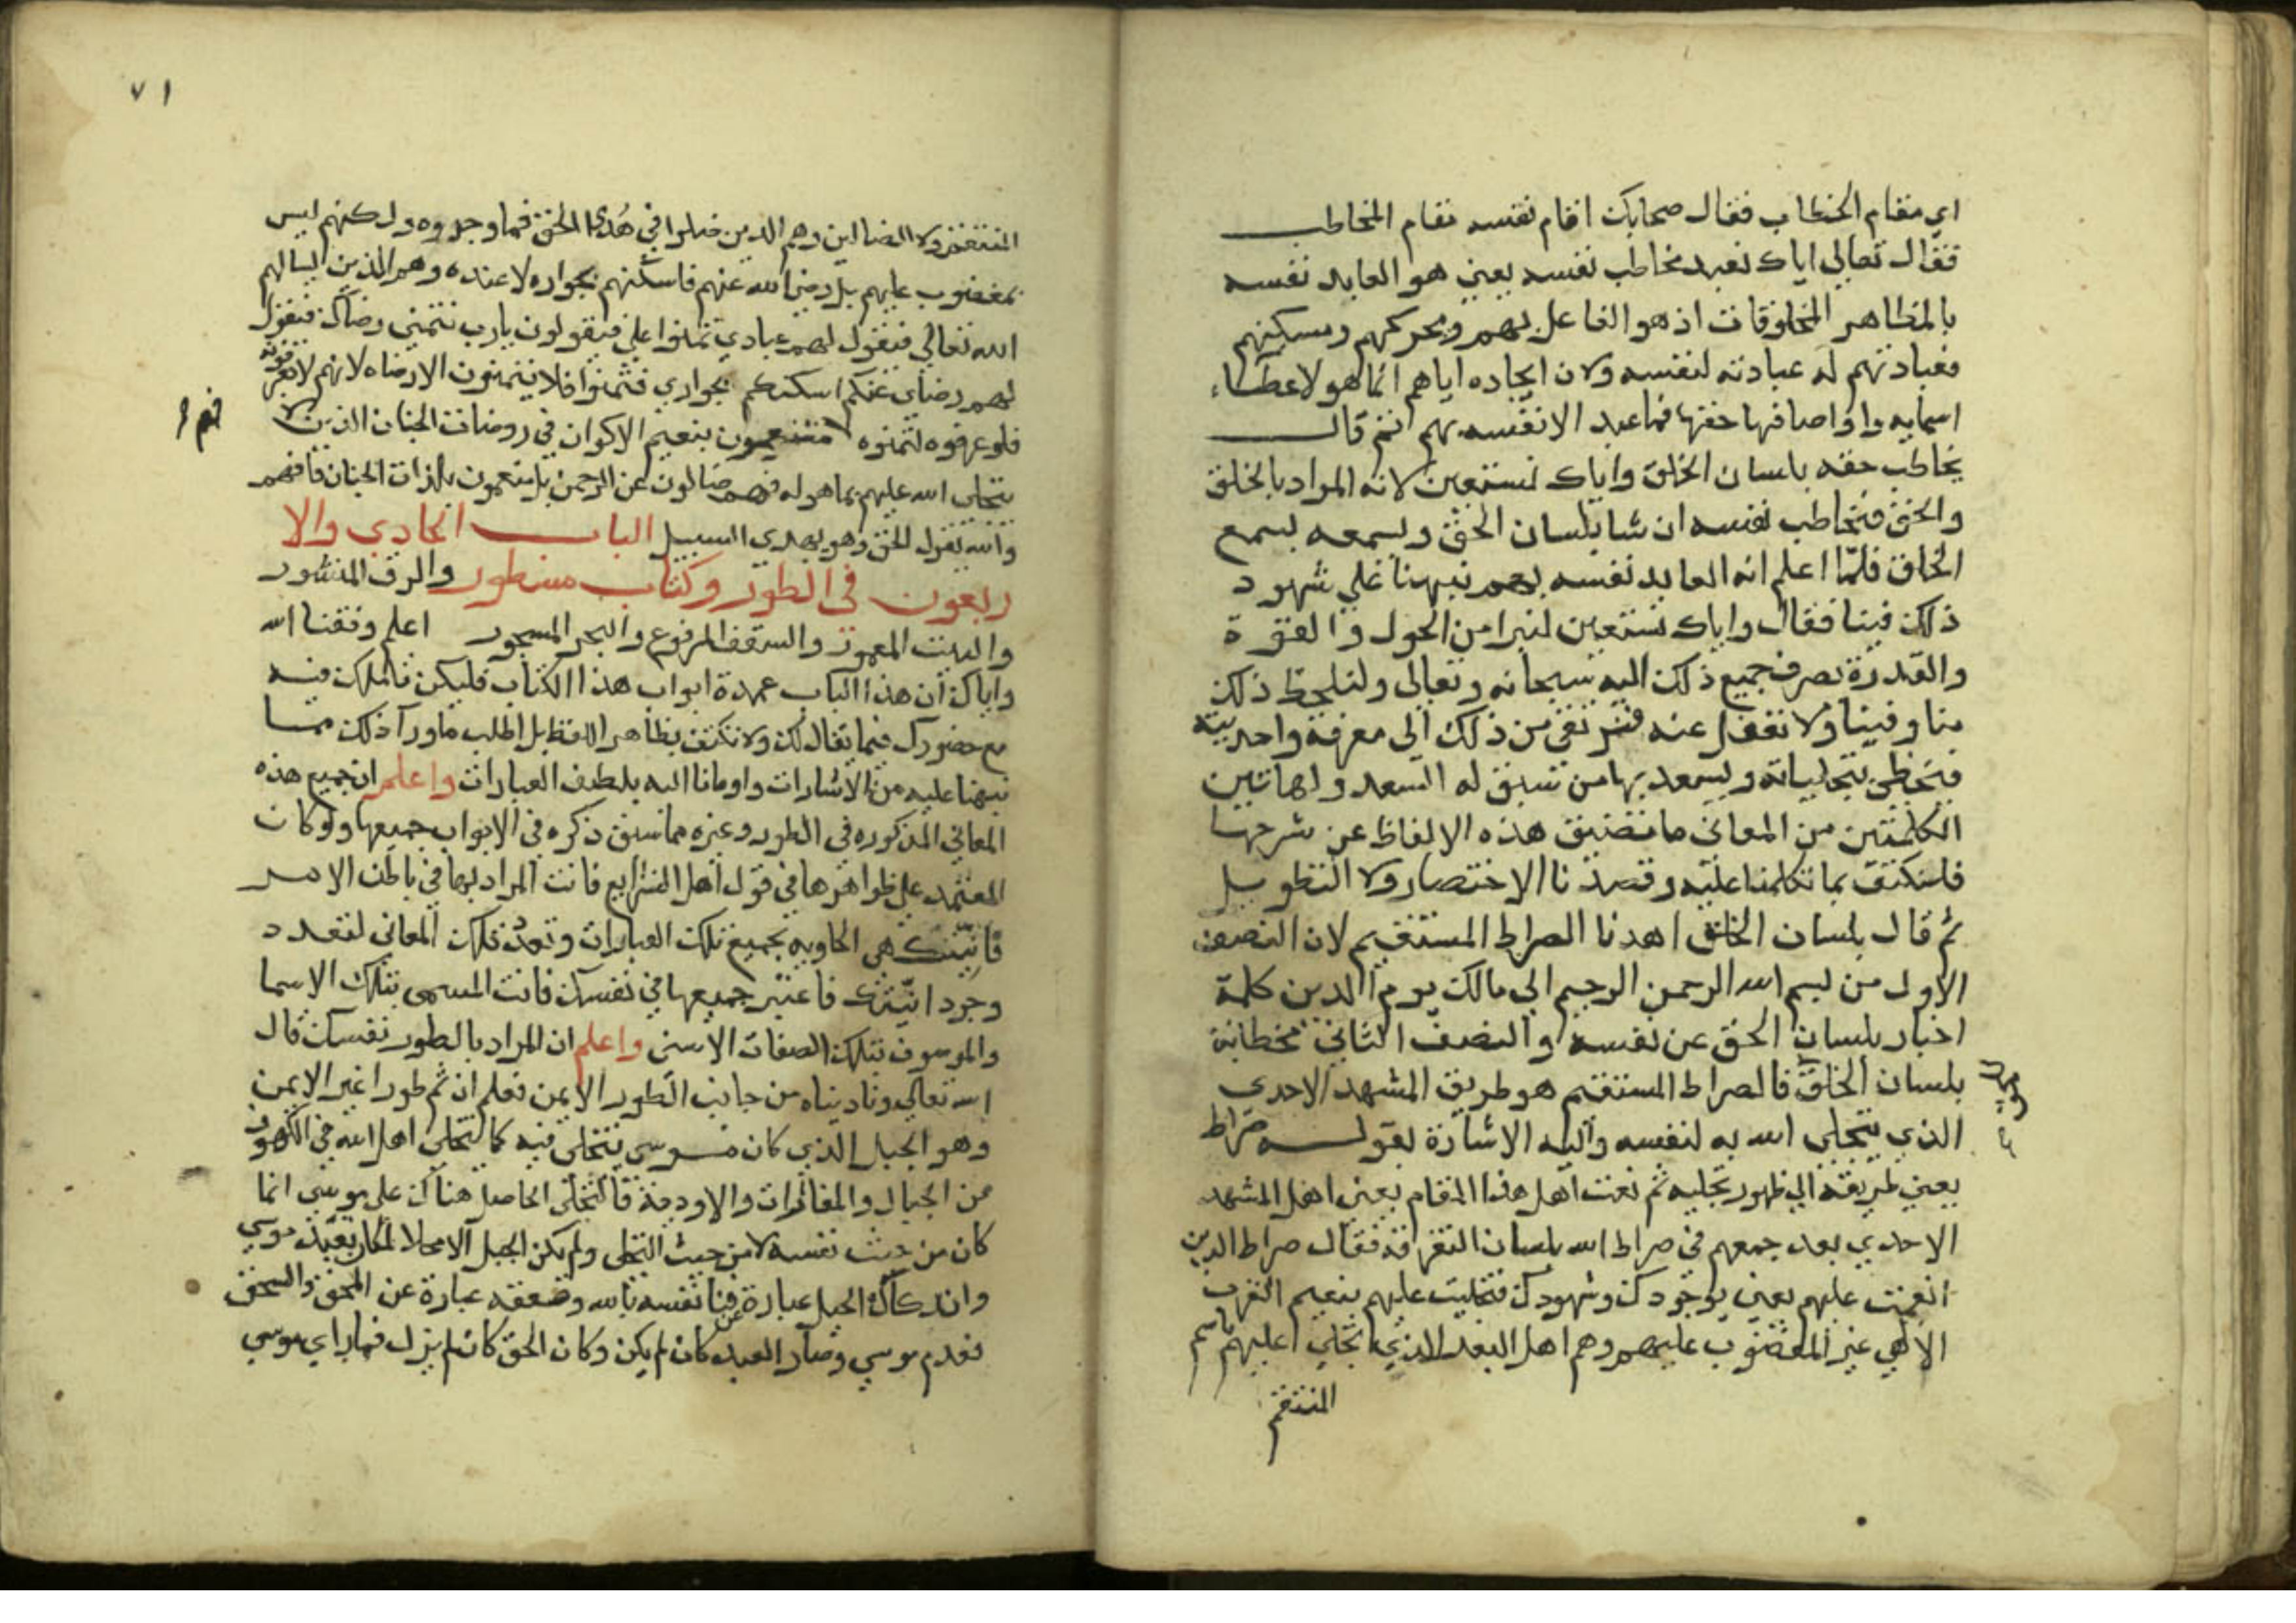 اي مقام الخطاب فقال صحابك اقام نفسه مقام المخاطب
فقال تعالي اياك نعبد مخاطب نفسه يعني هو العابد نفسه
بالمظاهر المخلوقات اذ هو الفاعل بهم ومحركهم ومسكنهم
فعبادتهم له عبادته لنفسه ولان ايجاده اياهم انما هو لاعطاء
اسمايه واوصافها حقها فما عبد الا نفسه بهم ثم قال
يخاطب حقه بلسان الخلق واياك نستعين لانه المراد بالخلق
والحق فيخاطب نفسه ان شا بلسان الحق ويسمعه بسمع
الخلق فلما اعلم انه العابد نفسه بهم نبهنا علي شهود
ذلك فينا فقال واياك نستعين لنبرا من الحول والقوة
والقدرة بصرف جميع ذلك اليه سبحانه وتعالي ولنلحظ ذلك
منا وفينا ولا نغفل عنه فنرتقي من ذلك الي معرفة واحديته
فنحظي بتجلياته ويسعد بها من سبق له السعد ولهاتين
الكلمتين من المعاني ما تضيق هذه الالفاظ عن شرحها
فلنكتف بما تكلمنا عليه وقصدنا الاختصار ولا التطويل
ثم قال بلسان الخلق اهدنا الصراط المستقيم لان النصف
الاول من بسم الله الرحمن الرحيم الي مالك يوم الدين كلمة
اخبار بلسان الحق عن نفسه والنصف الثاني مخطابة
بلسان الخلق فالصراط المستقيم هو طريق المشهد الاحدي
الذي يتجلي الله به لنفسه واليه الاشارة بقوله صراط
يعني طريقه الي ظهور تجليه ثم نعت اهل هذا المقام يعني اهل المشهد
الاحدي بعد جمعهم في صراط الله بلسان التفرقة فقال صراط الذين
انعمت عليهم يعني بوجودك وشهودك فتجليت عليهم بنعيم القرب
الالهي غير المغضوب عليهم وهم اهل البعد الذي تجلي عليهم باسم
المنتقم
٧١
المنتقم ولا الضالين وهم الذين ضلوا في هدى الحق فما وجدوه ولكنهم ليس
بمغضوب عليهم بل رضي الله عنهم فاسكنهم بجواره لا عنده وهم الذين
الله تعالي فيقول لهم عبادي تمنوا علي فيقولون يا رب نتمني رضاك فيقول
لهم رضاي عنكم اسكنكم بجواري فتمنوا فلا يتمنون الا رضاه لانهم لا يعرفونه
فلو عرفوه لتمنوه فهم متنعمون بنعيم الاكوان في روضات الجنان الذين لا
يتجلي الله عليهم بما هو له فهم ضالون عن الرحمن بل متنعمون بلذات الجنان فافهم
والله يقول الحق وهو يهدي السبيل الباب الحادي والا
ربعون في الطور وكتاب مسطور والرق المنشور
والبيت المعمور والسقف المرفوع والبحر المسجور اعلم وفقنا الله
واياك ان هذا الباب عمدة ابواب هذا الكتاب فليكن تاملك فيه
مع حضورك فيما يقال لك ولا تكتف بظاهر اللفظ بل اطلب ما ورا ذلك مما
نبهنا عليه من الاشارات واومانا اليه بلطيف العبارات واعلم ان جميع هذه
المعاني المذكوره في الطور وغيره مما سبق ذكره في الابواب جميعها ولو كان
المعتمد علي ظواهرها في قول اهل الشرايع فانت المراد بها في باطن الامر
فانيتك هي الحاويه بجميع تلك العبارات وتعدد تلك المعاني لتعدد
وجود انيتك فاعتبر جميعها في نفسك فانت المسمي بتلك الاسما
والموسوف بتلك الصفات الاسني واعلم ان المراد بالطور نفسك قال
الله تعالي وناديناه من جانب الطور الايمن فعلم ان ثم طورا غير الايمن
وهو الجبل الذي كان موسي يتجلي فيه كما تتجلي اهل الله في الكهوف
من الجبال والمغائرات والاودية فالتجلي الحاصل هناك علي موسي انما
كان من حيث نفسه لا من حيث التجلي ولم يكن الجبل الا محلا لمكان تعبد موسي
واندكاك الجبل عبارة عن فنا نفسه بالله وصعقه عبارة عن المحق والسحق
فعدم موسي وصار العبد كان لم يكن وكان الحق كان لم يزل فما راي موسي